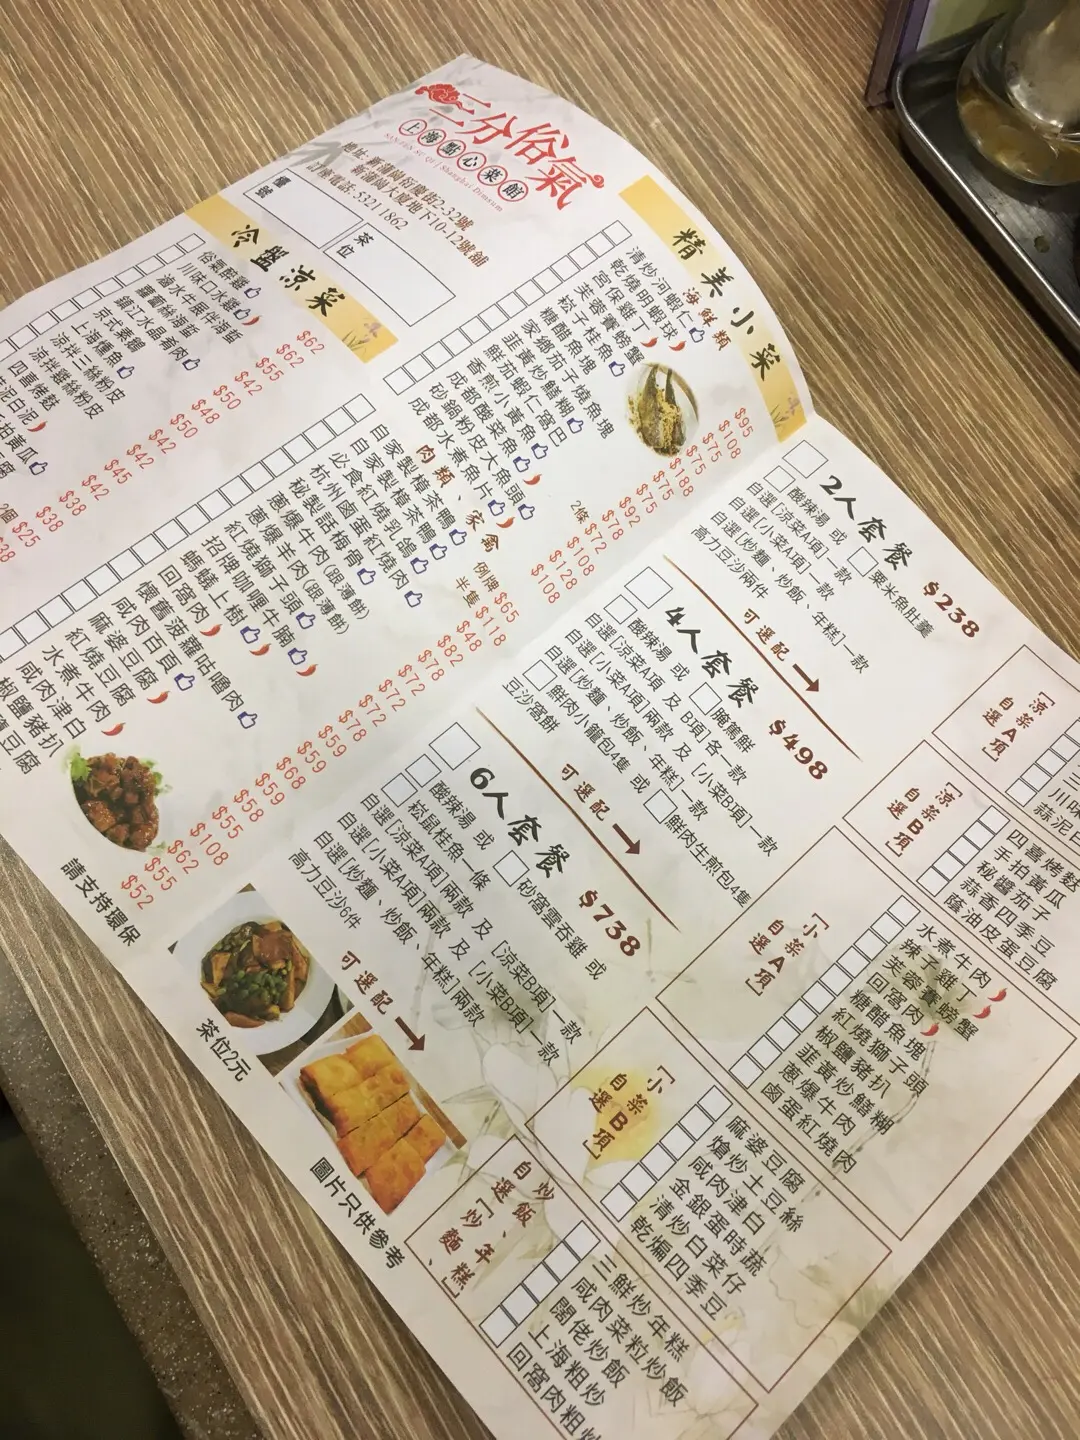 三分俗氣
上海點心菜館
SANFEN SU QI | Shanghai Dimsum
地址: 新蒲崗衍慶街2-32號
新蒲崗大廈地下10-12號舖
訂座電話: 5321 1862
檯號
茶位
冷盤涼菜
俗氣醉雞 $62
川味口水雞 $62
滷水牛展伴海蜇 $55
蘿蔔絲海蜇 $42
鎮江水晶肴肉 $50
京式素鵝 $48
上海燻魚 $50
涼拌三絲粉皮 $42
涼拌雞絲粉皮 $42
四喜烤麩 $45
精美小菜
海鮮類
清炒河蝦仁 $95
乾燒明蝦球 $108
宮保雞丁 $75
芙蓉賽螃蟹 $75
松子桂魚 $188
糖醋魚塊 $75
家鄉茄子燒魚塊 $75
韮黃炒鱔糊 $92
鮮茄蝦仁窩巴 $78
香煎小黃魚 2條 $72
成都酸菜魚 $108
砂鍋粉皮大魚頭 $128
成都水煮魚片 $108
肉類、家禽
自家製樟茶鴨 例牌 $65
自家製樟茶鴨 半隻 $118
必食紅燒乳鴿 $48
杭州鹵蛋紅燒肉 $82
秘製話梅骨 $78
蔥爆牛肉(跟薄餅) $72
蔥爆羊肉(跟薄餅) $72
紅燒獅子頭 $72
招牌咖喱牛腩 $78
螞蟻上樹 $59
回窩肉 $59
懷舊菠蘿咕嚕肉 $68
咸肉百頁 $59
麻婆豆腐 $58
紅燒豆腐 $55
水煮牛肉 $108
咸肉津白 $62
椒鹽豬扒 $55
$52
請支持環保
2人套餐 $238
酸辣湯 或 粟米魚肚羹
自選[涼菜A項]一款
自選[小菜A項]一款
自選[炒麵、炒飯、年糕]一款
高力豆沙兩件
可選配
4人套餐 $498
酸辣湯 或 腌篤鮮
自選[涼菜A項 及 B項]各一款
自選[小菜A項]兩款 及 [小菜B項]一款
自選[炒麵、炒飯、年糕]一款
鮮肉小籠包4隻 或 鮮肉生煎包4隻
豆沙窩餅
可選配
6人套餐 $738
酸辣湯 或 砂窩雲吞雞 或
崧鼠桂魚一條
自選[涼菜A項]兩款 及 [涼菜B項]一款
自選[小菜A項]兩款 及 [小菜B項]一款
自選[炒麵、炒飯、年糕]兩款
高力豆沙6件
可選配
茶位2元
圖片只供參考
自選「涼菜A項」
自選「涼菜B項」
四喜烤麩
手拍黃瓜
秘醬茄子
蒜香四季豆
蔭油皮蛋豆腐
自選「小菜A項」
水煮牛肉
辣子雞丁
芙蓉賽螃蟹
回窩肉
糖醋魚塊
紅燒獅子頭
椒鹽豬扒
韮黃炒鱔糊
蔥爆牛肉
鹵蛋紅燒肉
自選「小菜B項」
麻婆豆腐
熗炒土豆絲
咸肉津白
金銀蛋時蔬
清炒白菜仔
乾煸四季豆
自選「炒麵、炒飯、年糕」
三鮮炒年糕
咸肉菜粒炒飯
闊佬炒飯
上海粗炒
回窩肉粗炒